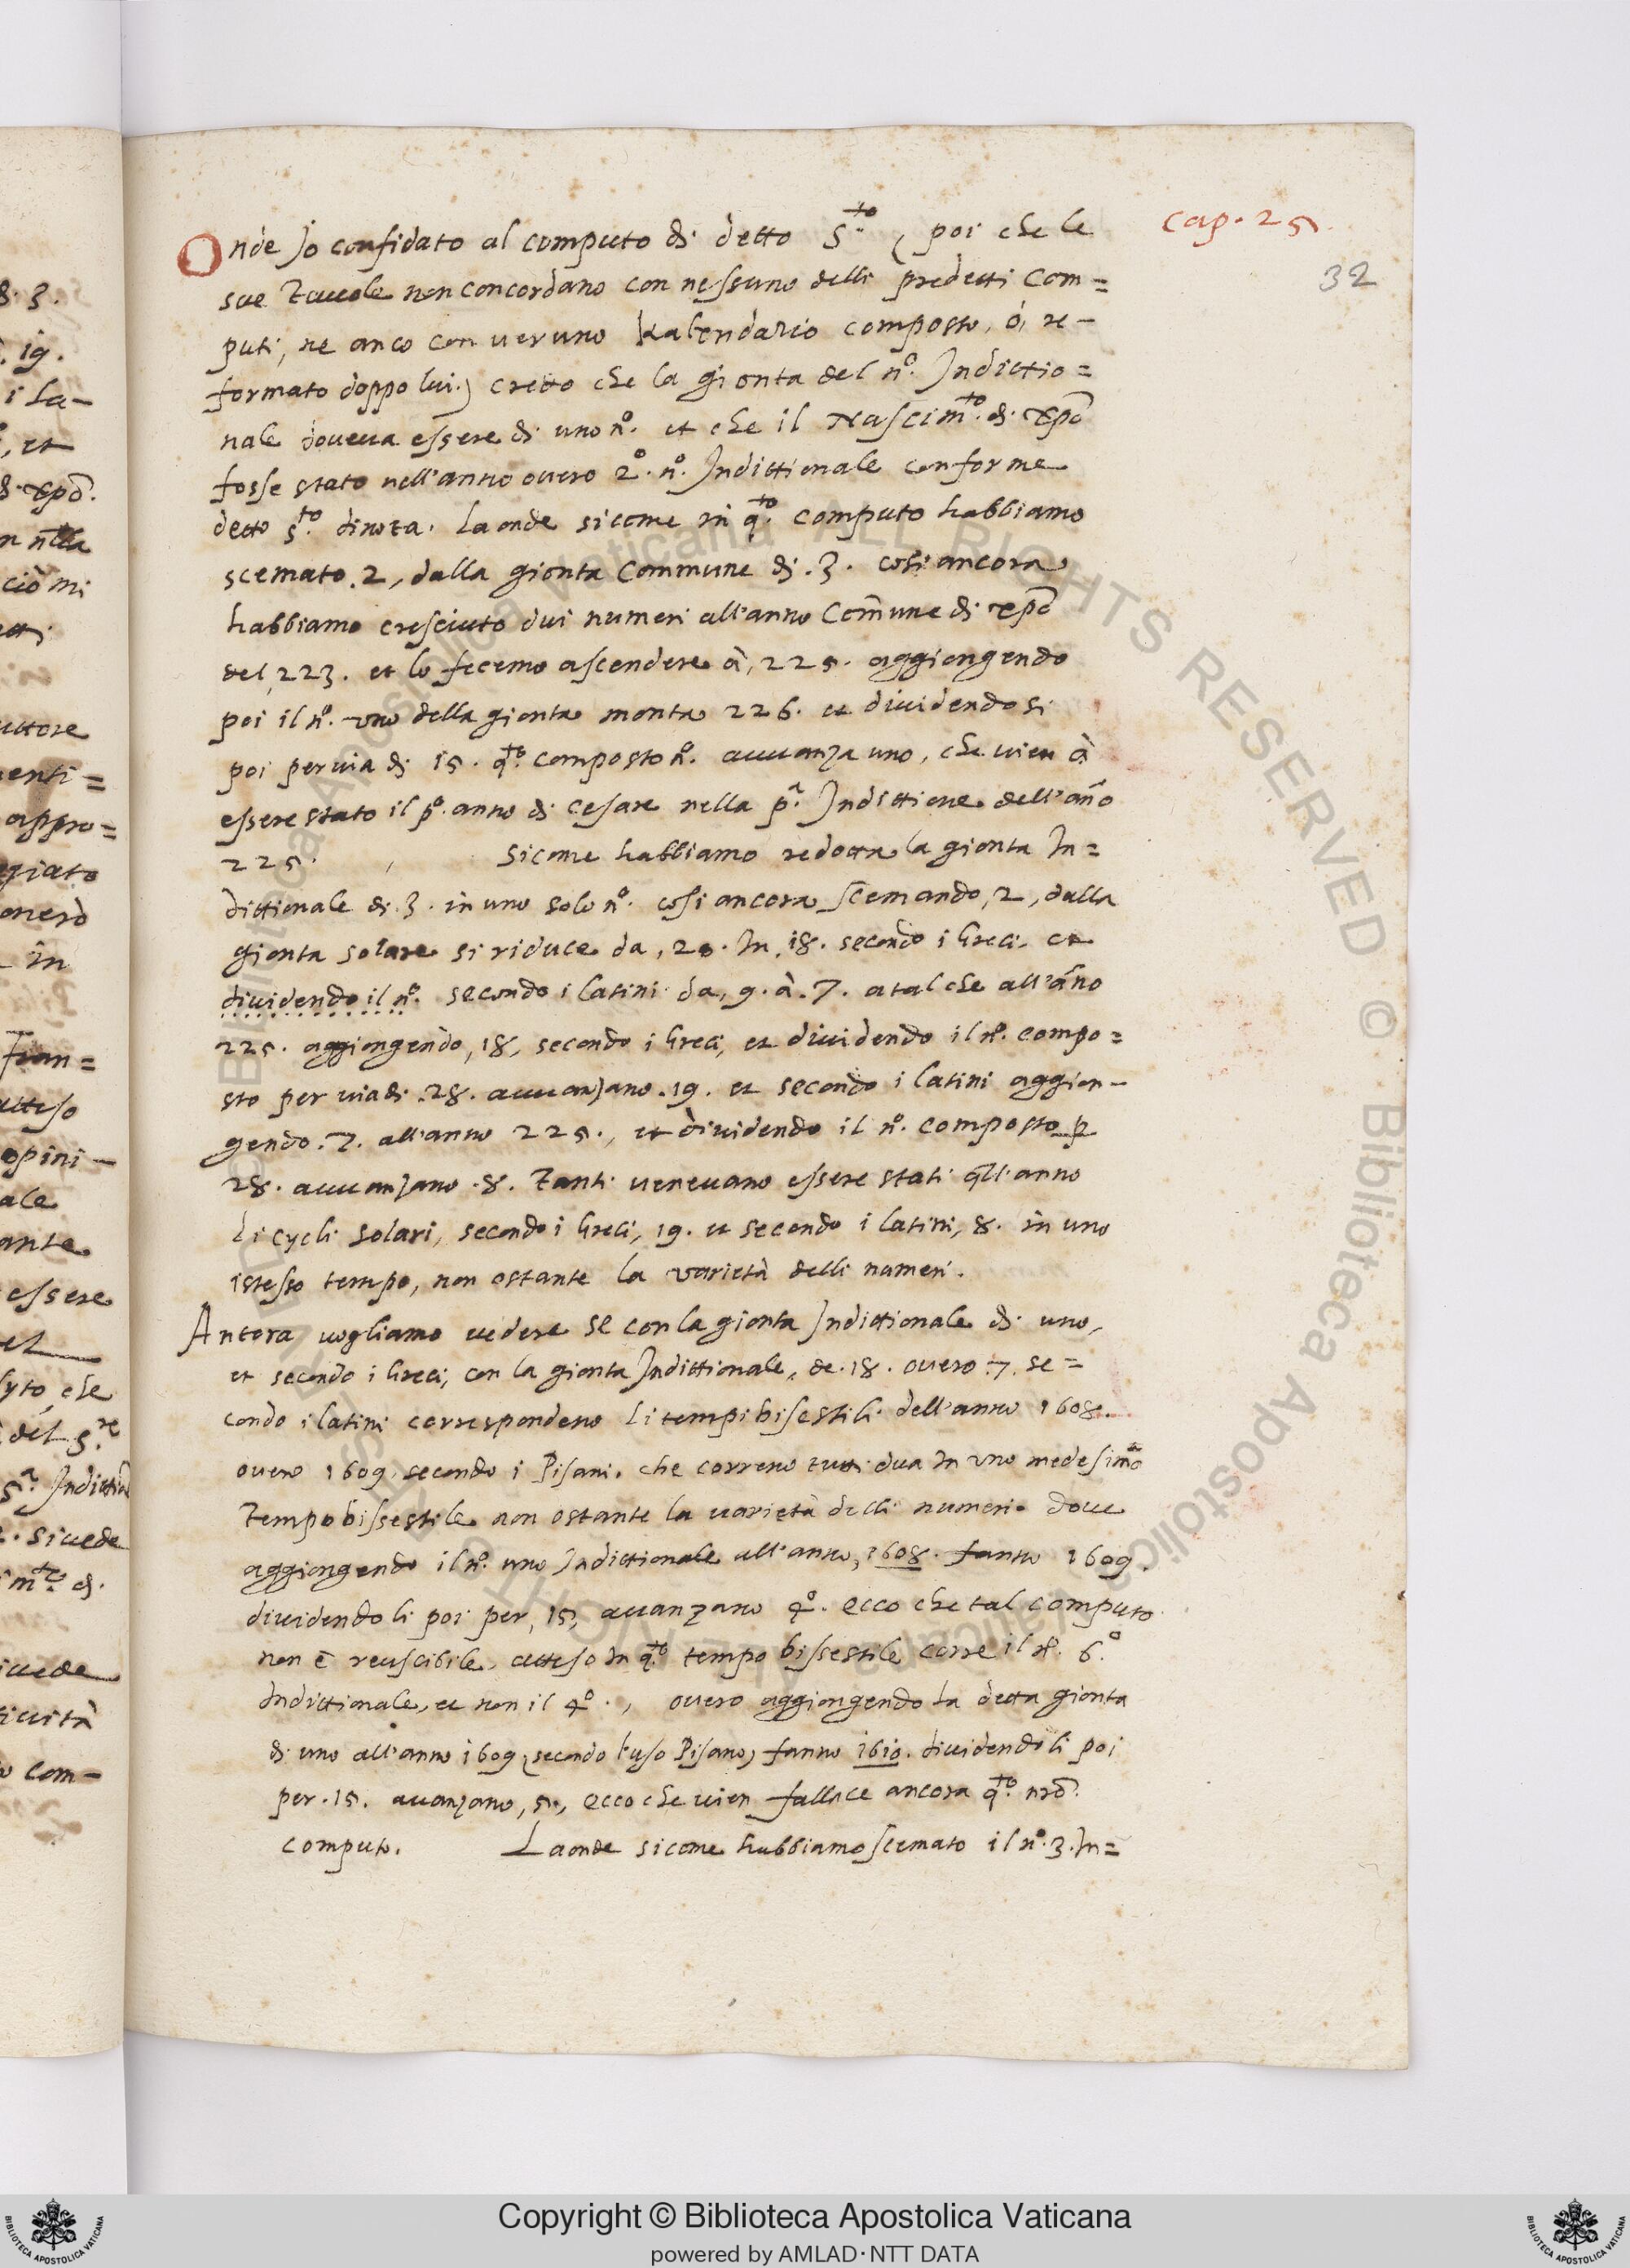 Cap. 25
32
Onde Jo confidato al computo di detto S.to (poi che le
sue Tauole non concordano con nessuno delli predetti Com=
puti, ne anco con veruno Kalendario composto, ó, re-
formato doppo lui.) credo che la gionta del n.o Indictio=
nale doueua essere di uno n.o et che il Nascim.to di Xpõ
fosse stato nell'anno ouero 2.o n.o Indittionale conforme
detto S.to dinota. Laonde sicome in q.to computo habbiamo
scemato .2, dalla gionta Commune di .3. cosi ancora
habbiamo cresciuto dui numeri all'anno Com̃une di Xpõ
del, 223. et lo fecemo ascendere à, 225. aggiongendo
poi il n.o uno della gionta monta 226. et diuidendosi
poi per uia di 15. q.to composto n.o auuanza uno, che uien à
essere stato il p.o anno di Cesare nella p.a Indittione dell'año
225. Sicome habbiamo redotta la gionta In=
dittionale di .3. in uno solo n.o cosi ancora scemando, 2, dalla
gionta solare si riduce da, 20. In .18. secondo i Greci et
diuidendo il n.o secondo i latini da, 9. à .7. atal che all'año
225. aggiongendo, 18, secondo i Greci, et diuidendo il n.o compo=
sto per uia di .28. auuanzano .19. et secondo i latini aggion-
gendo .7. all'anno 225., et diuidendo il n.o composto p
28. auuanzano .8. Tanti ueneuano essere stati q̃ll'anno
li cycli solari, secondo i Greci, 19. et secondo i latini, 8. in uno
istesso tempo, non ostante la varietà delli numeri.
Ancora uogliamo uedere se con la gionta Indittionale di uno,
et secondo i Greci, con la gionta Indittionale, de .18. ouero .7. se=
condo i latini correspondeno li tempi bisestili dell'anno 1608.
ouero 1609 secondo i Pisani. che correno tutti dua In uno medesimo
Tempo bissestile non ostante la uarietà delli numeri. doue
aggiongendo il n.o uno Indictionale all'anno, 1608. fanno 1609.
diuidendoli poi per, 15, auanzano 4.o ecco che tal computo
non è reuscibile, atteso In q.to tempo bissestile corre il n.o 6.o
Indittionale, et non il 4.o., ouero aggiongendo la detta gionta
di uno all'anno 1609 (secondo l'uso Pisano) fanno 1610. diuidendoli poi
per .15. auanzano, 5., ecco che uien fallace ancora q.to nrõ
computo. Laonde sicome habbiamo scemato il n.o 3. In=
Copyright © Biblioteca Apostolica Vaticana
powered by AMLAD·NTT DATA